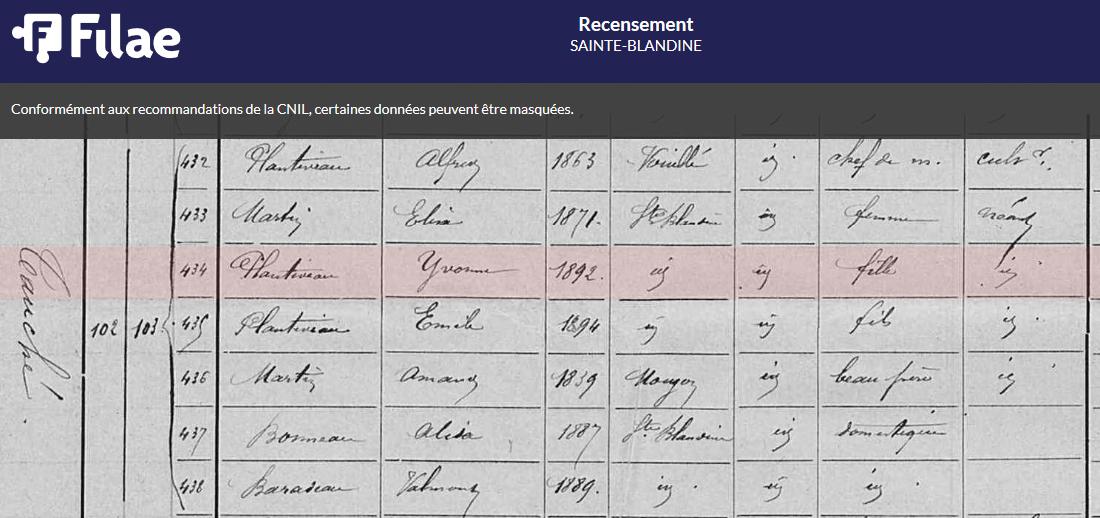 Filae
Recensement
SAINTE-BLANDINE
Conformément aux recommandations de la CNIL, certaines données peuvent être masquées.
432 Plantiveau Alfred 1863 Vouillé id. chef de m. cultr.
433 Martin Elisa 1871. Ste Blandine id femme néant
434 Plantiveau Yvonne 1892. id id fille id
102 103 435 Plantiveau Emile 1894 id id fils id.
436 Martin Amand 1839 Mougon id beau père id
437 Bonneau Alida 1887 Ste Blandine id domestique
438 Baradeau Valmont 1889. id. id id.